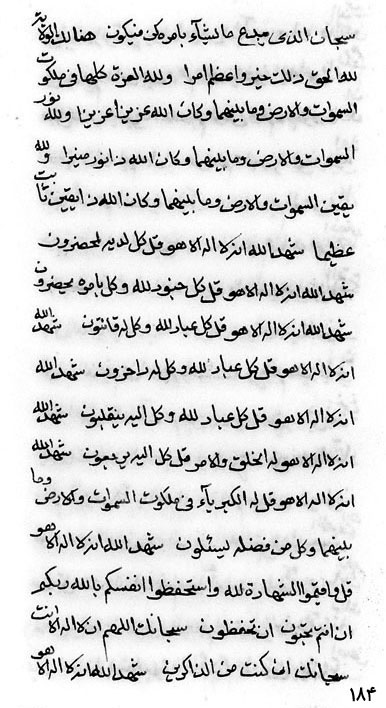 سبحان الذی یبدع ما یشآء بامره کن فیکون هنالک الولایة
لله الحق ذلک خیر واعظم امرا ولله العزة کلها فی ملکوت
السموات والارض وما بینهما وکان الله عزیزا عزیزا ولله نور
السموات والارض وما بینهما وکان الله ذا نور منیرا ولله
یقین السموات والارض وما بینهما وکان الله ذا یقین
عظیما شهد الله انه لا اله الا هو قل کل لدیه لمحضرون
شهد الله انه لا اله الا هو قل کل جنود لله وکل بامره یحضرون
شهد الله انه لا اله الا هو قل کل عباد لله وکل له قانتون شهد الله
انه لا اله الا هو قل کل عباد لله وکل له داخرون شهد الله
انه لا اله الا هو قل کل عباد لله وکل الیه ینقلبون شهد الله
انه لا اله الا هو له الخلق والامر قل کل الیه یرجعون شهد الله
انه لا اله الا هو قل له الکبریآء فی ملکوت السموات والارض وما
بینهما وکل من فضله یسئلون شهد الله انه لا اله الا هو
قل فاقیموا الشهادة لله واستحفظوا انفسکم بالله ربکم
ان انتم تحبون ان تحفظون سبحانک اللهم ان لا اله الا انت
سبحانک ان کنت من الذاکرین شهد الله انه لا اله الا هو
۱۸۴